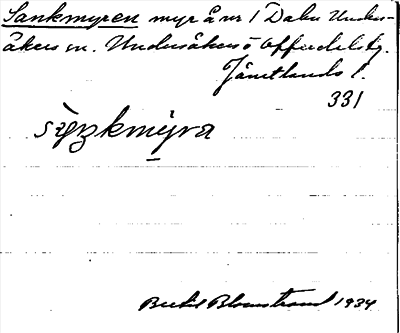 Sankmyren myr å nr 1 Dalen Undersåkers sn. Undersåkers o Offerdals tg.
Jämtlands l.
331
sàŋkmýra
Bertil Blomstrand 1934